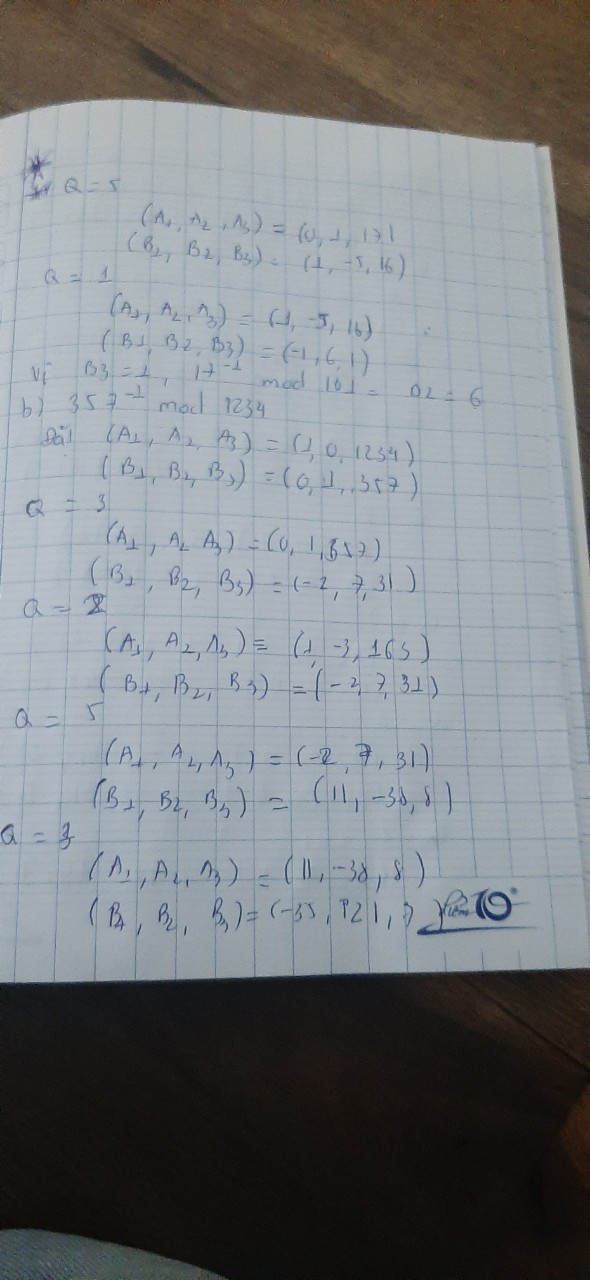 Q = 5
(A1, A2, A3) = (0, 1, 17)
(B1, B2, B3) = (1, -5, 16)
Q = 1
(A1, A2, A3) = (1, -5, 16)
(B1, B2, B3) = (-1, 6, 1)
Vì B3 = 1, 17⁻¹ mod 101 = B2 = 6
b) 357⁻¹ mod 1234
Đặt (A1, A2, A3) = (1, 0, 1234)
(B1, B2, B3) = (0, 1, 357)
Q = 3
(A1, A2 A3) = (0, 1, 357)
(B1, B2, B3) = (-2, 7, 31)
Q = 2
(A1, A2, A3) = (1, -3, 163)
(B1, B2, B3) = (-2, 7, 31)
Q = 5
(A1, A2, A3) = (-2, 7, 31)
(B1, B2, B3) = (11, -38, 8)
Q = 3
(A1, A2, A3) = (11, -38, 8)
(B1, B2, B3) = (-35, 121, 7)
Điểm 10